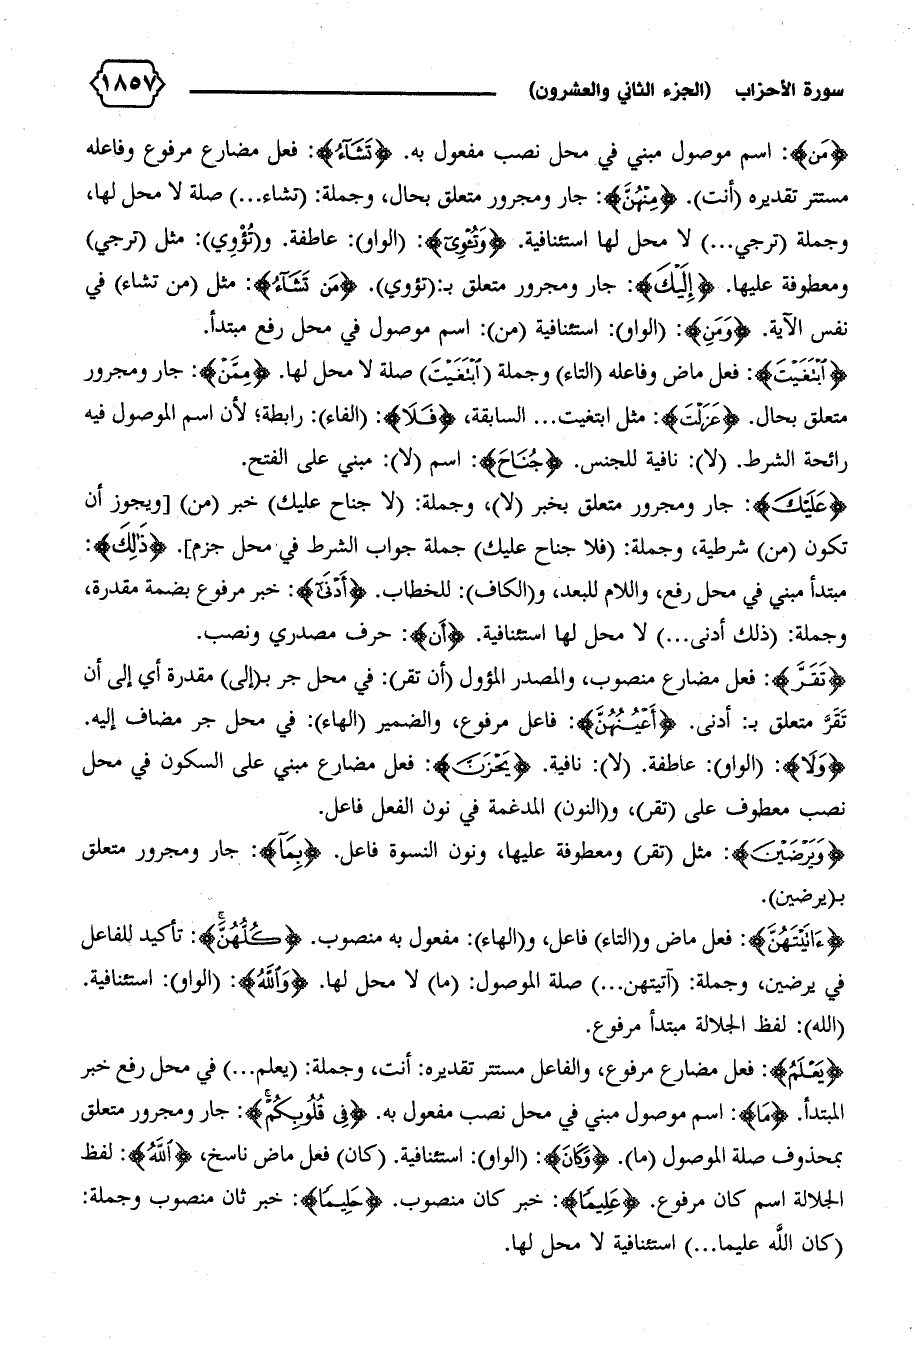 سورة الأحزاب (الجزء الثاني والعشرون) ١٨٥٧
﴿مَن﴾: اسم موصول مبني في محل نصب مفعول به. ﴿تَشَآءُ﴾: فعل مضارع مرفوع وفاعله
مستتر تقديره (أنت). ﴿مِنْهُنَّ﴾: جار ومجرور متعلق بحال، وجملة: (تشاء...) صلة لا محل لها،
وجملة (ترجي...) لا محل لها استئنافية. ﴿وَتُـْٔوِىٓ﴾: (الواو): عاطفة. و(تُؤْوِي): مثل (ترجي)
ومعطوفة عليها. ﴿إِلَيْكَ﴾: جار ومجرور متعلق بـ:(تؤوي). ﴿مَن تَشَآءُ﴾: مثل (من تشاء) في
نفس الآية. ﴿وَمَنِ﴾: (الواو): استئنافية (من): اسم موصول في محل رفع مبتدأ.
﴿ٱبْتَغَيْتَ﴾: فعل ماض وفاعله (التاء) وجملة (ٱبْتَغَيْتَ) صلة لا محل لها. ﴿مِمَّنْ﴾: جار ومجرور
متعلق بحال. ﴿عَزَلْتَ﴾: مثل ابتغيت... السابقة، ﴿فَلَا﴾: (الفاء): رابطة؛ لأن اسم الموصول فيه
رائحة الشرط. (لا): نافية للجنس. ﴿جُنَاحَ﴾: اسم (لا): مبني على الفتح.
﴿عَلَيْكَ﴾: جار ومجرور متعلق بخبر (لا)، وجملة: (لا جناح عليك) خبر (من) [ويجوز أن
تكون (من) شرطية، وجملة: (فلا جناح عليك) جملة جواب الشرط في محل جزم]. ﴿ذَٰلِكَ﴾:
مبتدأ مبني في محل رفع، واللام للبعد، و(الكاف): للخطاب. ﴿أَدْنَىٰٓ﴾: خبر مرفوع بضمة مقدرة،
وجملة: (ذلك أدنى...) لا محل لها استئنافية. ﴿أَن﴾: حرف مصدري ونصب.
﴿تَقَرَّ﴾: فعل مضارع منصوب، والمصدر المؤول (أن تقر): في محل جر بـ(إلى) مقدرة أي إلى أن
تَقَرَّ متعلق بـ: أدنى. ﴿أَعْيُنُهُنَّ﴾: فاعل مرفوع، والضمير (الهاء): في محل جر مضاف إليه.
﴿وَلَا﴾: (الواو): عاطفة. (لا): نافية. ﴿يَحْزَنَّ﴾: فعل مضارع مبني على السكون في محل
نصب معطوف على (تقر)، و(النون) المدغمة في نون الفعل فاعل.
﴿وَيَرْضَيْنَ﴾: مثل (تقر) ومعطوفة عليها، ونون النسوة فاعل. ﴿بِمَآ﴾: جار ومجرور متعلق
بـ(يرضين).
﴿ءَاتَيْتَهُنَّ﴾: فعل ماض و(التاء) فاعل، و(الهاء): مفعول به منصوب. ﴿كُلُّهُنَّۚ﴾: تأكيد للفاعل
في يرضين، وجملة: (آتيتهن...) صلة الموصول: (ما) لا محل لها. ﴿وَٱللَّهُ﴾: (الواو): استئنافية.
(الله): لفظ الجلالة مبتدأ مرفوع.
﴿يَعْلَمُ﴾: فعل مضارع مرفوع، والفاعل مستتر تقديره: أنت، وجملة: (يعلم...) في محل رفع خبر
المبتدأ. ﴿مَا﴾: اسم موصول مبني في محل نصب مفعول به. ﴿فِى قُلُوبِكُمْۚ﴾: جار ومجرور متعلق
بمحذوف صلة الموصول (ما). ﴿وَكَانَ﴾: (الواو): استئنافية. (كان) فعل ماض ناسخ، ﴿ٱللَّهُ﴾: لفظ
الجلالة اسم كان مرفوع. ﴿عَلِيمًا﴾: خبر كان منصوب. ﴿حَلِيمًا﴾: خبر ثان منصوب وجملة:
(كان اللَّه عليما...) استئنافية لا محل لها.